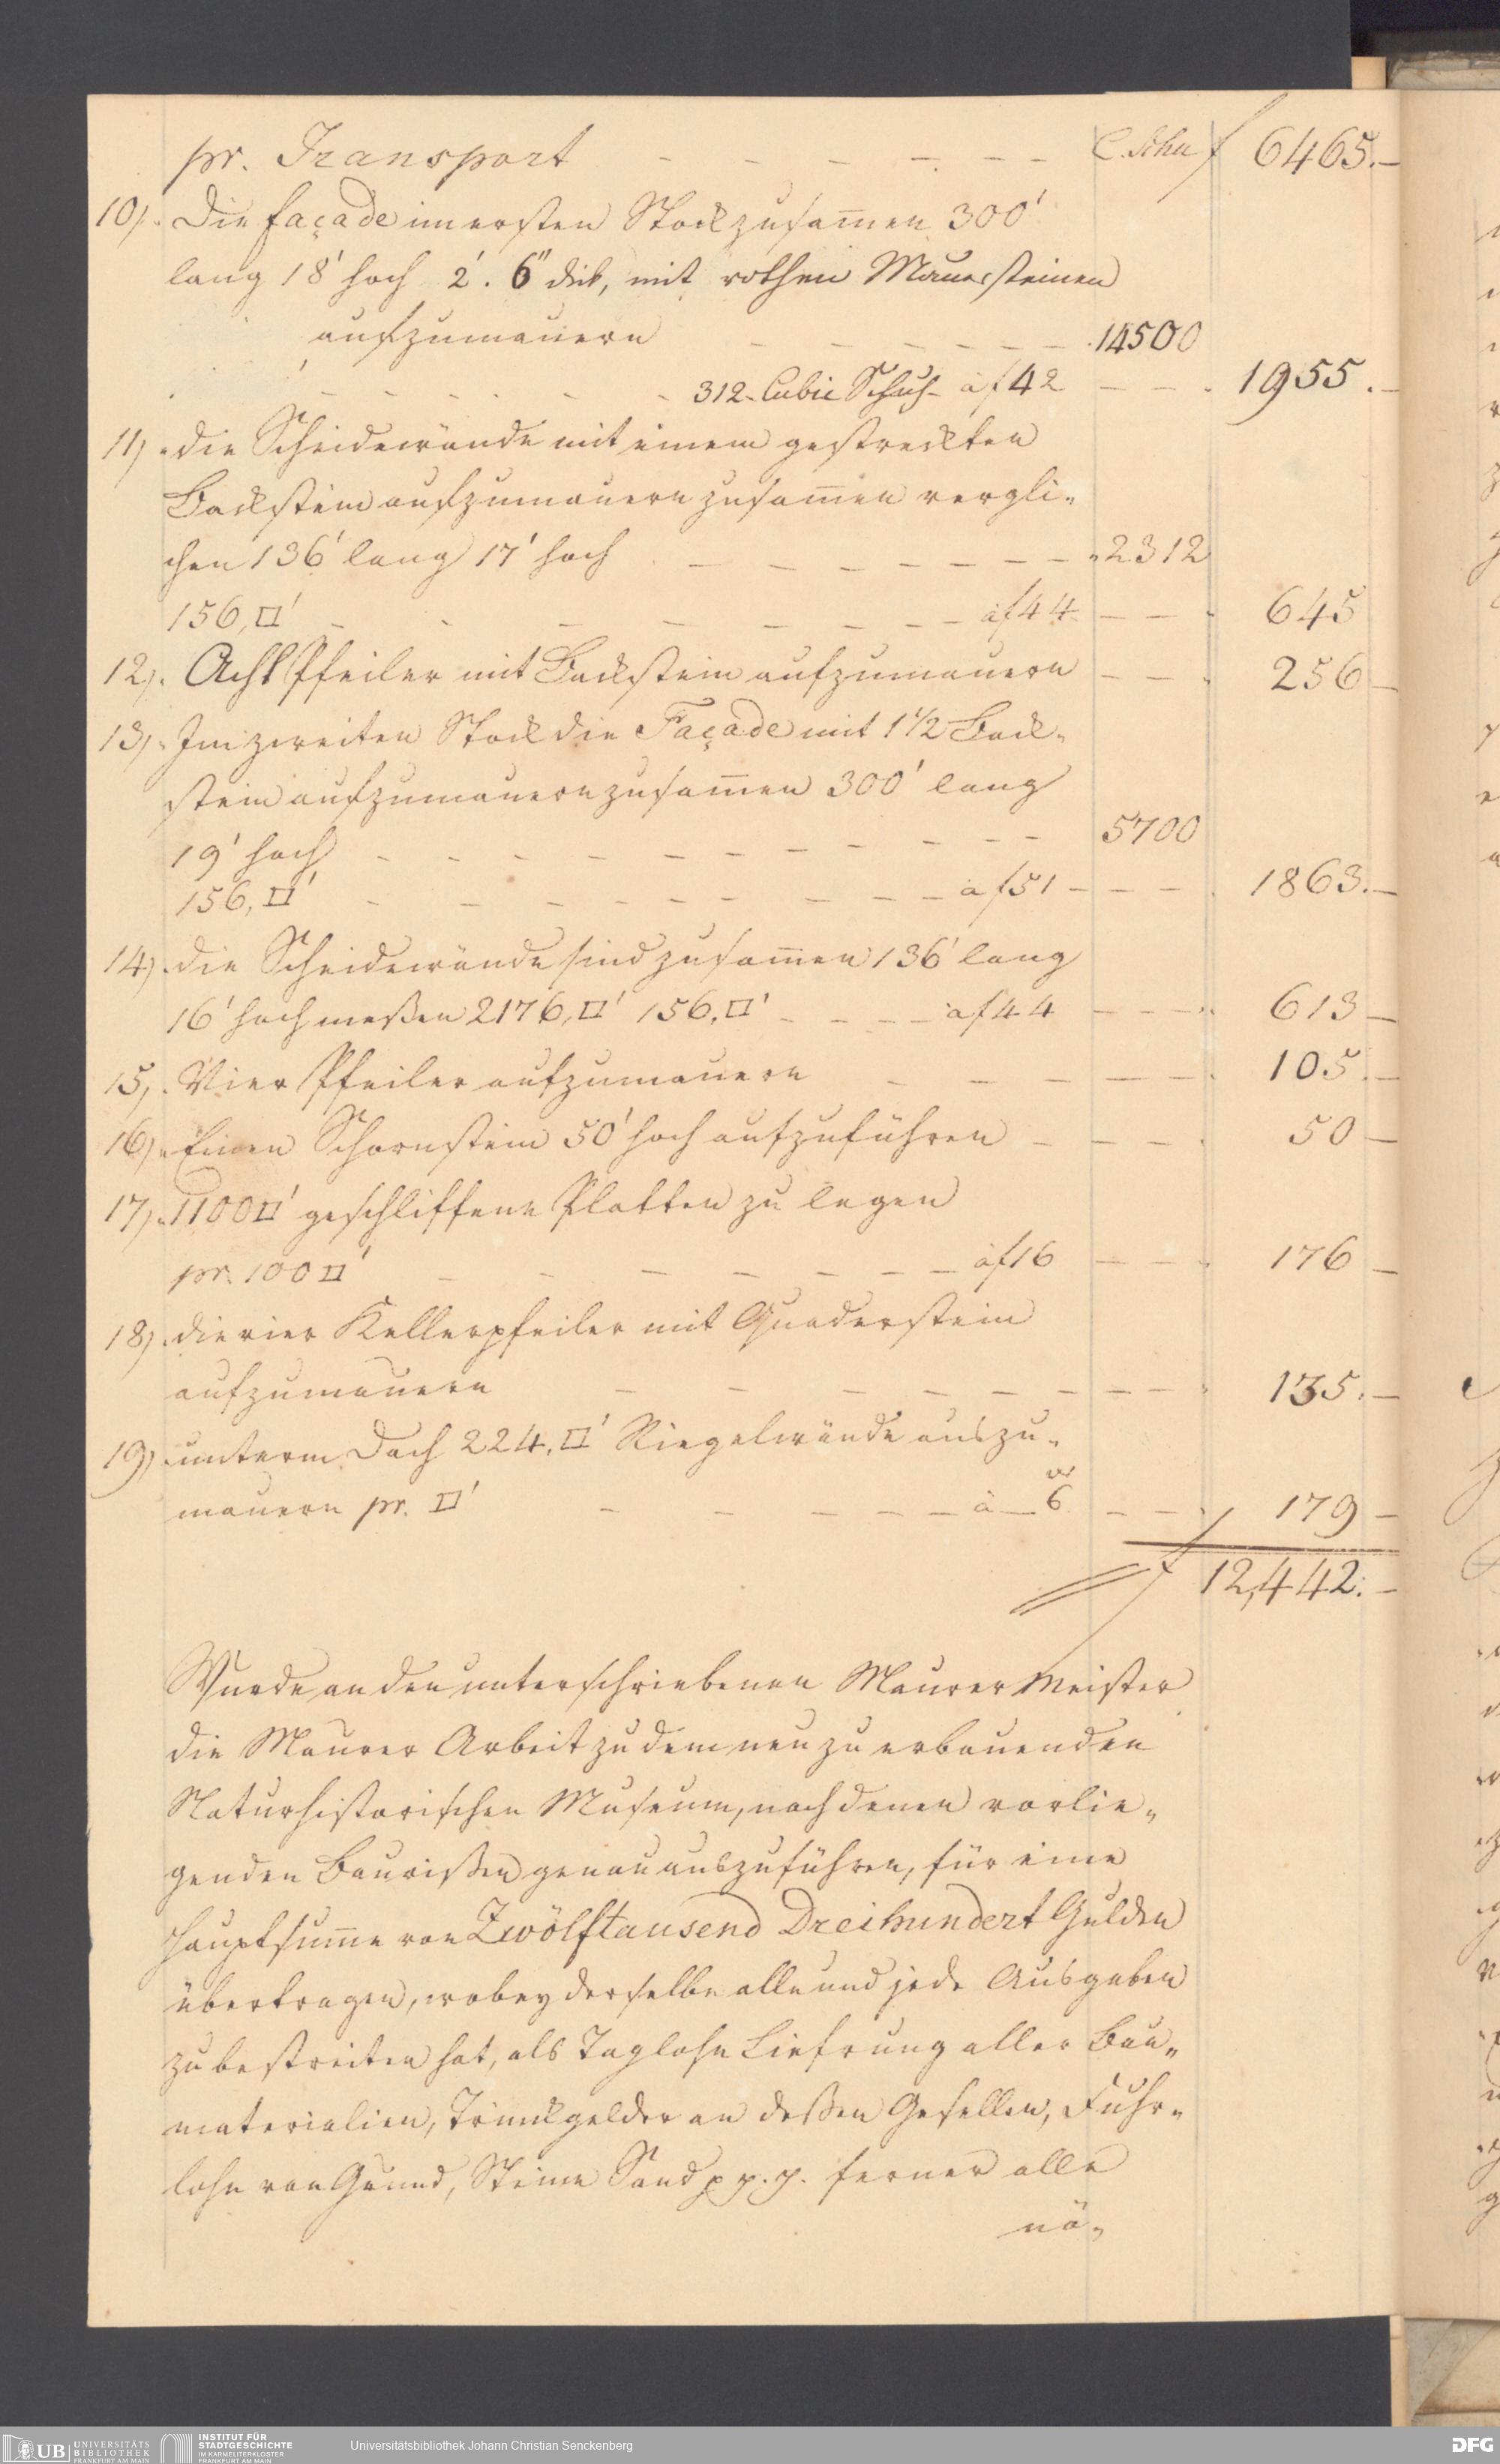 pr. Transport - - - - - - C. Schu f 6465.-
10). Die façade im ersten Stock zusam̄en 300'
lang 18' hoch 2'. 6" dick, mit rothen Mauersteinen
aufzumauern - - - - - - 14500
312. Cubic Schuh à f 42 - - - 1955.-
11). die Scheidewände mit einem gestreckten
Backstein aufzumauern zusam̄en vergli-
chen 136' lang 17' hoch - - - - - - - 2312
156, □' - - - - - - - - à f 44 - - - 645
12). Acht Pfeiler mit Backstein aufzumauern - - - 256 -
13). Im zweiten Stock die Façade mit 1 1/2 Back-
stein aufzumauern zusam̄en 300' lang
19' hoch - - - - - - - - - - 5700
156, □' - - - - - - - - - à f 51 - - - 1863.-
14). die Scheidewände sind zusam̄en 136' lang
16' hoch meßen 2176, □' 156, □' - - - - à f 44 - - - 613 -
15). Vier Pfeiler aufzumauern - - - - - - 105.-
16). Einen Schornstein 50' hoch aufzuführen - - - - 50 -
17). 1100 □' geschliffene Platten zu legen
pr. 100 □' - - - - - - - à f 16 - - - 176 -
18). die vier Kellerpfeiler mit Quaderstein
aufzumauern - - - - - - - - - 135.-
19). unterm Dach 224, □' Riegelwände auszu-
mauern pr. □' - - - - - - à - 6 - - 179 -
f 12,442.-
Wurde an den unterschriebenen Maurer Meister
die Maurer Arbeit zu dem neu zu erbauenden
Naturhistorischen Museum, nach denen vorlie-
genden Baurißen genau auszuführen, für eine
Hauptsum̄e von Zwölftausend Dreihundert Gulden
übertragen, wobey derselbe alle und jede Ausgaben
zu bestreiten hat, als Taglohn Liefrung aller Bau-
materialien, Trinkgelder an deßen Gesellen, Fuhr-
lohn von Grund, Steine Sand p. p. p. ferner alle
nö-
UB UNIVERSITÄTS BIBLIOTHEK FRANKFURT AM MAIN
INSTITUT FÜR STADTGESCHICHTE IM KARMELITERKLOSTER FRANKFURT AM MAIN
Universitätsbibliothek Johann Christian Senckenberg
DFG